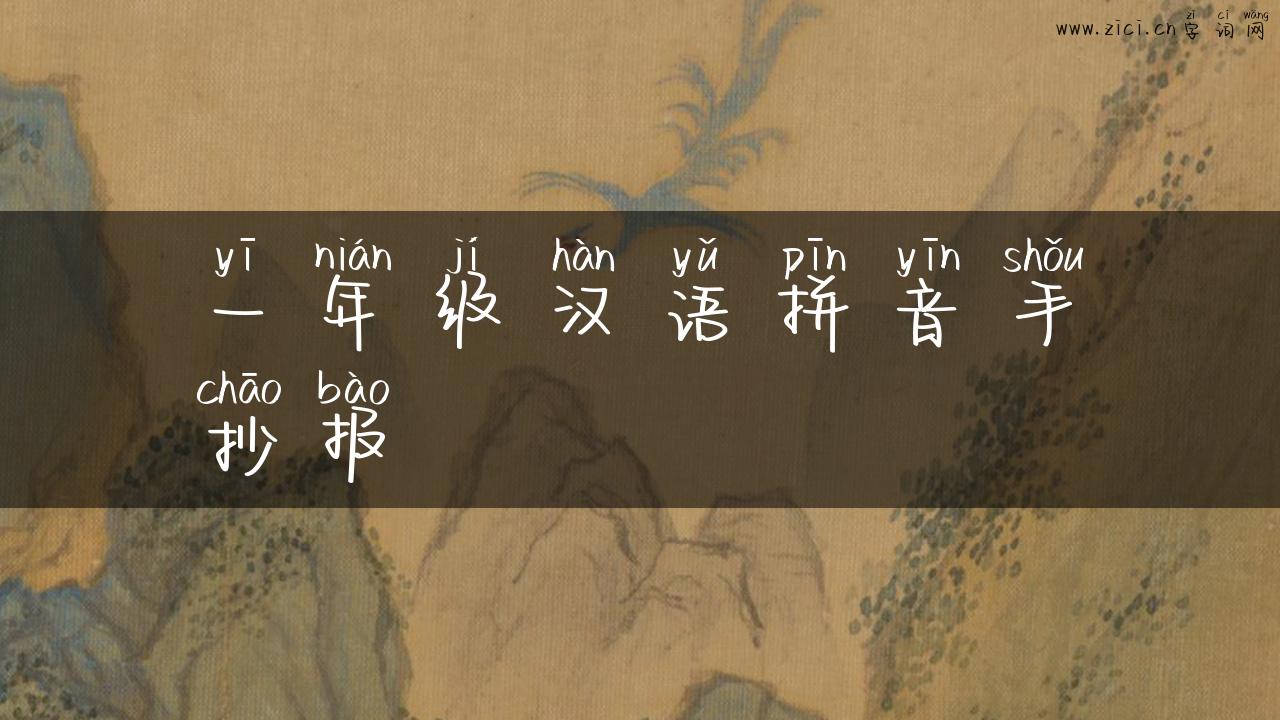 zì cí wǎng
www.zici.cn字词网
yī nián jí hàn yǔ pīn yīn shǒu
一年级汉语拼音手
chāo bào
抄报